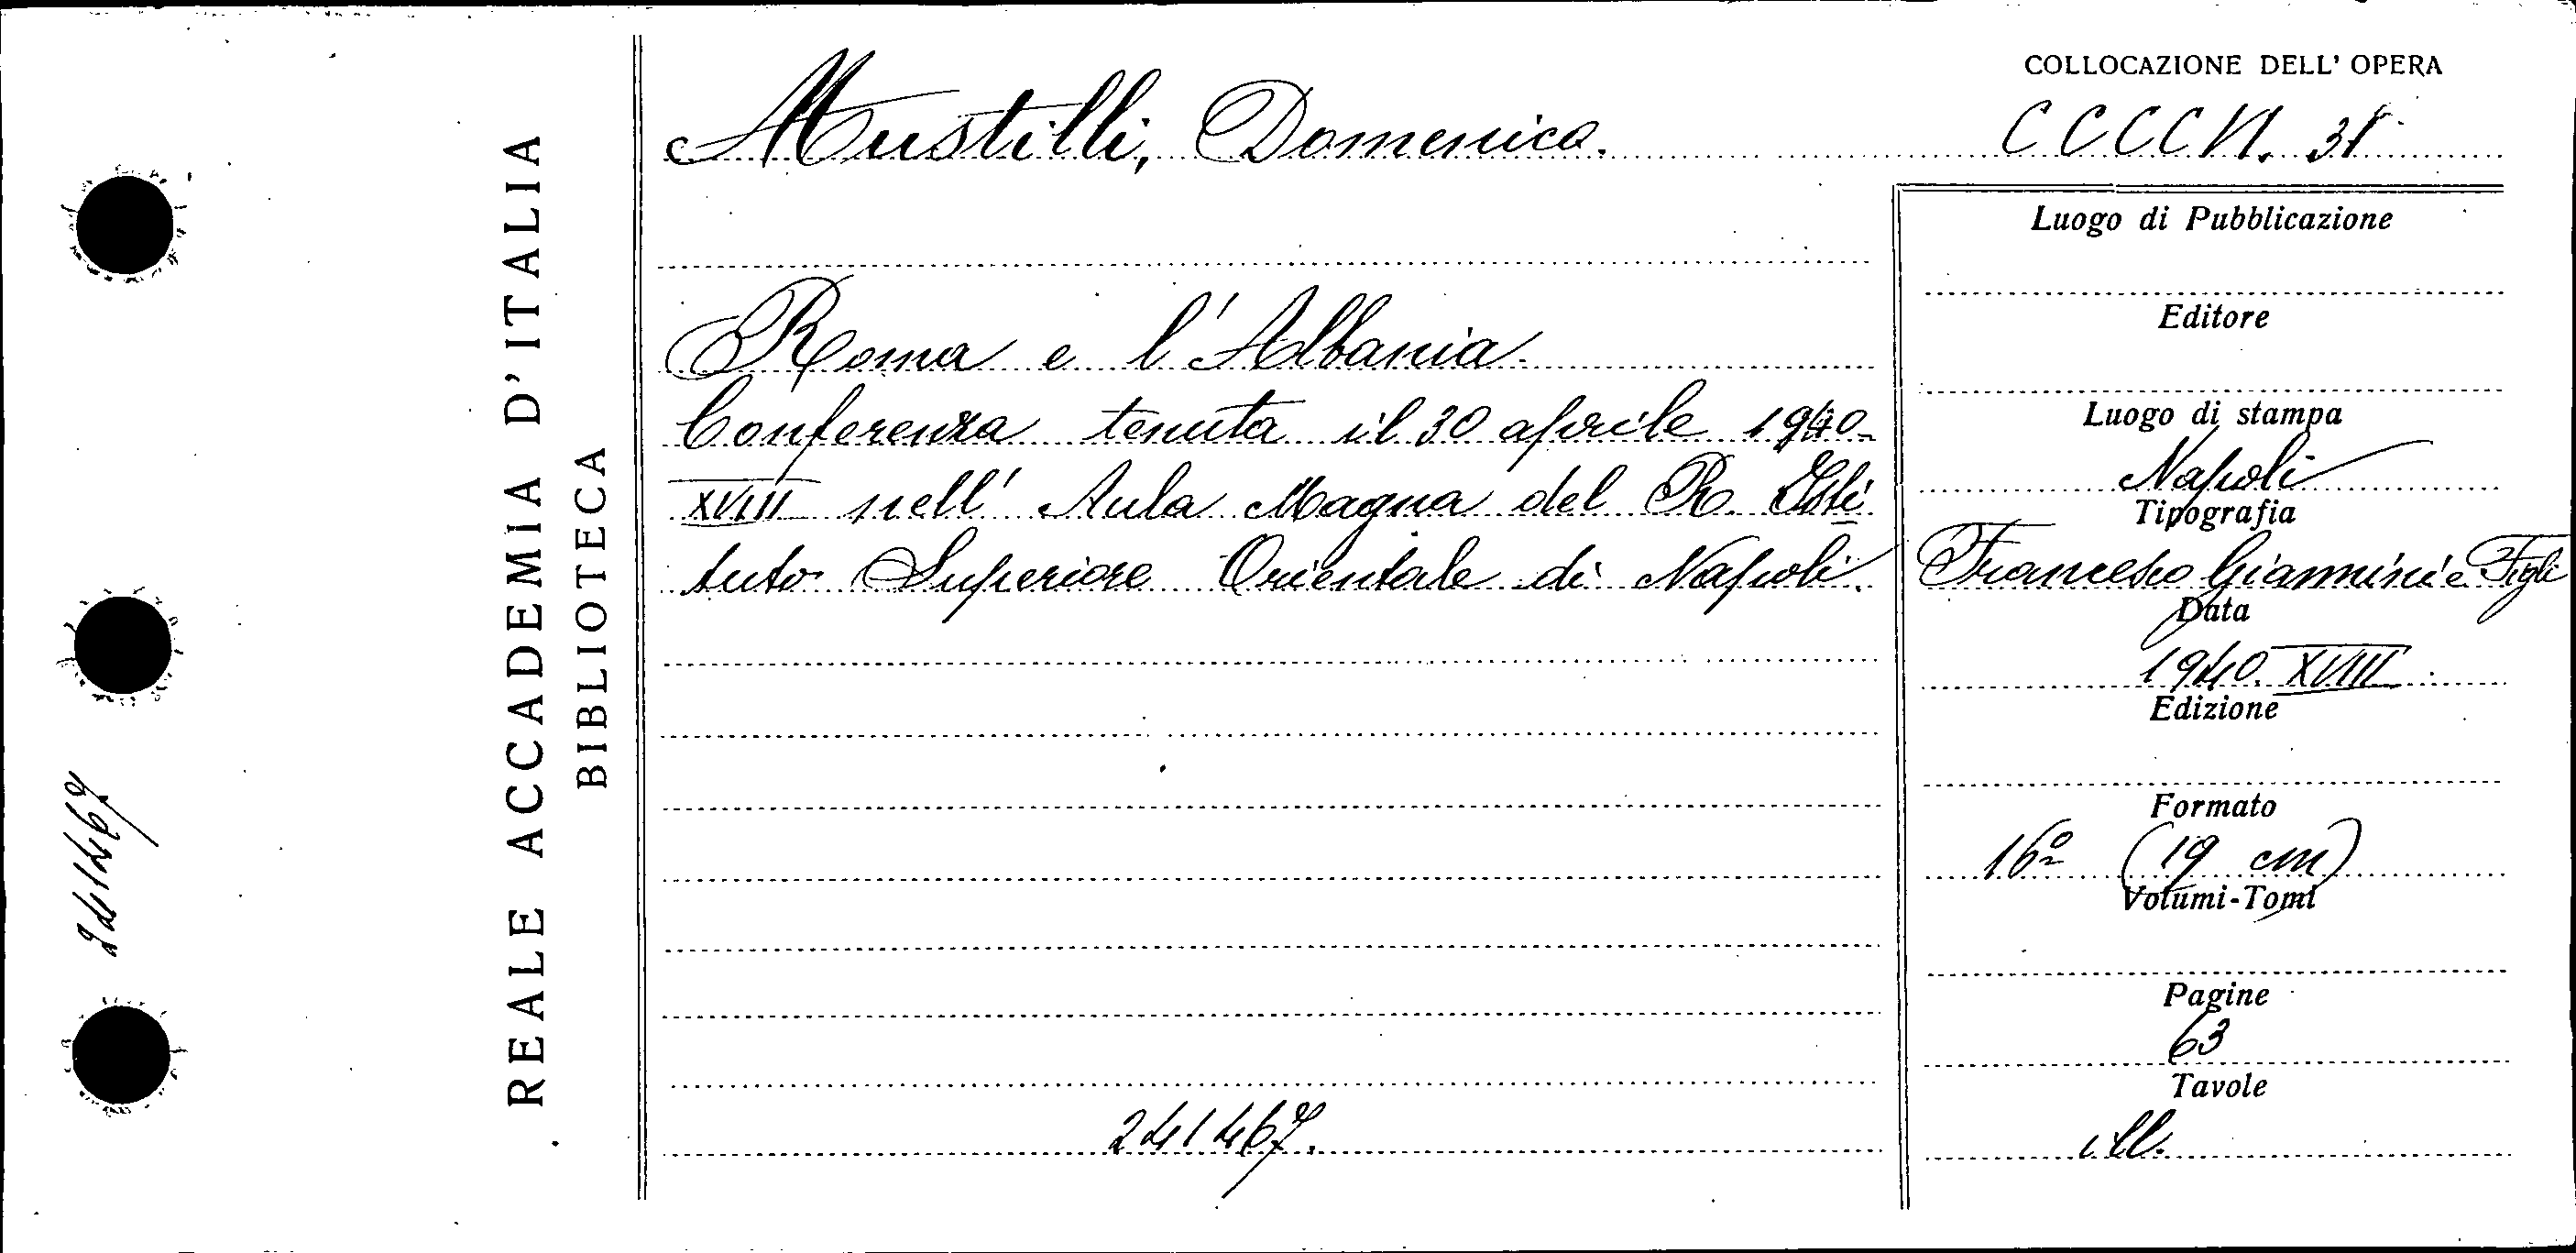 REALE ACCADEMIA D'ITALIA
BIBLIOTECA
241467
Mustilli, Domenico.
Roma e l'Albania.
Conferenza tenuta il 30 aprile 1940-
XVIII nell' Aula Magna del R. Isti
tuto Superiore Orientale di Napoli.
241467.
COLLOCAZIONE DELL' OPERA
CCCCVI.
Luogo di Pubblicazione
Editore
Luogo di stampa
Napoli
Tipografia
Francesco Giannini e Figli
Data
1940. XVIII
Edizione
Formato
16º (19 cm)
Volumi-Tomi
Pagine
63
Tavole
ill.